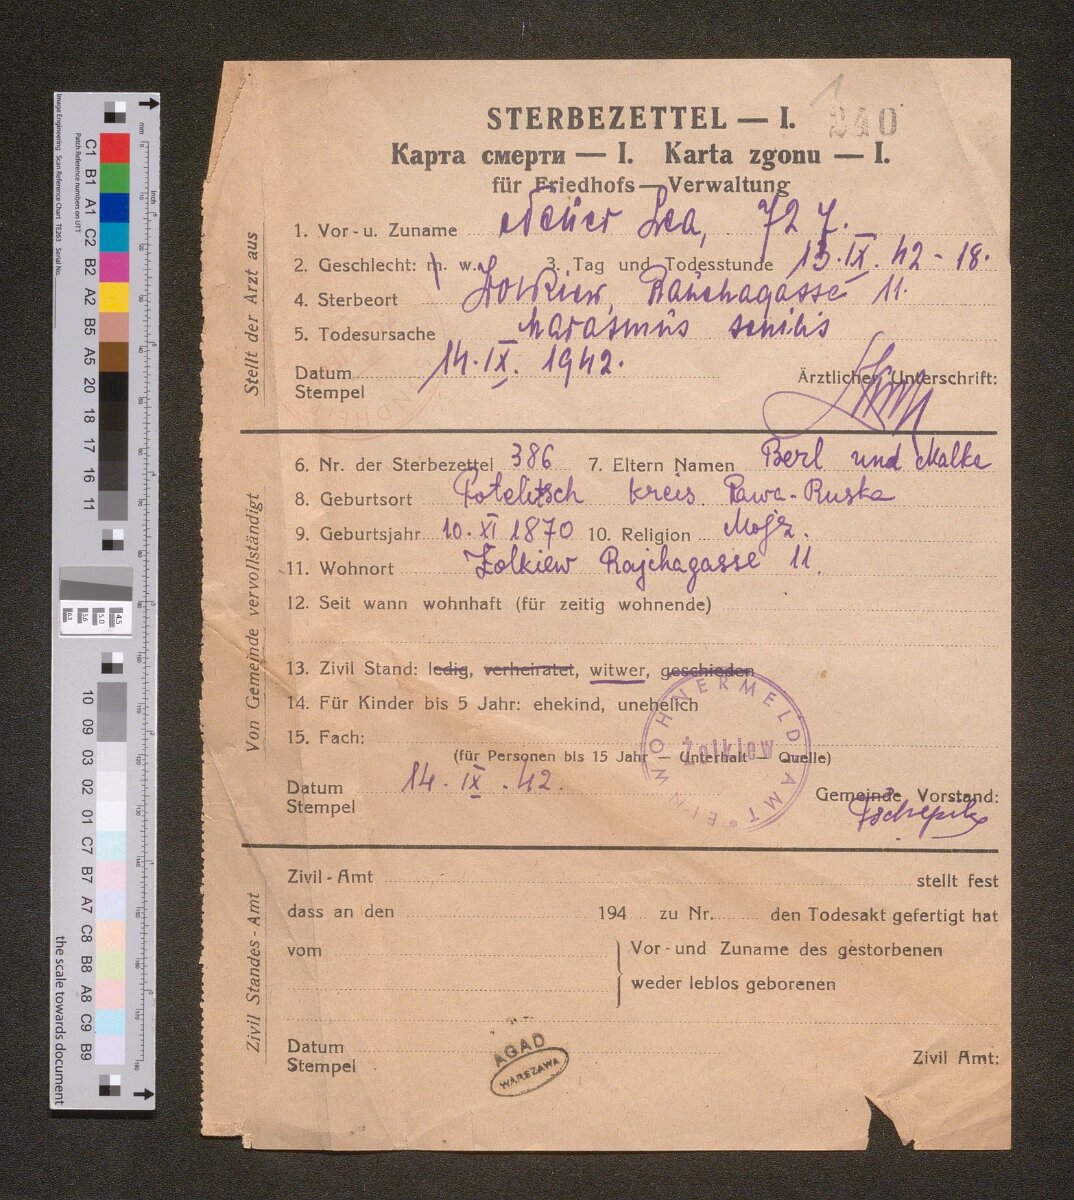 STERBEZETTEL — I. 240
Карта смерти — I. Karta zgonu — I.
für Friedhofs — Verwaltung
Stellt der Arzt aus
1. Vor- u. Zuname Neuer Lea, 72 J.
2. Geschlecht: m. w. 3. Tag und Todesstunde 13. IX. 42 - 18.
4. Sterbeort Zolkiew, 11.
5. Todesursache Marasmus senilis
Datum 14. IX. 1942.
Stempel
Ärztlicher Unterschrift:
Von Gemeinde vervollständigt
6. Nr. der Sterbezettel 386 7. Eltern Namen Berl und Malke
8. Geburtsort Potelitsch kreis Rawa-Ruska
9. Geburtsjahr 10. XI 1870 10. Religion Mojż.
11. Wohnort Żolkiew Rajchagasse 11.
12. Seit wann wohnhaft (für zeitig wohnende)
13. Zivil Stand: ledig, verheiratet, witwer, geschieden
14. Für Kinder bis 5 Jahr: ehekind, unehelich
15. Fach:
(für Personen bis 15 Jahr — Unterhalt — Quelle)
EINWOHNERMELDAMT
Żolkiew
Datum 14. IX. 42.
Stempel
Gemeinde Vorstand:
Zivil Standes-Amt
Zivil-Amt stellt fest
dass an den 194 zu Nr. den Todesakt gefertigt hat
vom Vor- und Zuname des gestorbenen
weder leblos geborenen
Datum
Stempel
Zivil Amt:
AGAD
WARSZAWA
Image Engineering Scan Reference Chart TE263 Serial No.
Patch Reference numbers on UTT
C1 B1 A1 C2 B2 A2 B5 A5 20 18 17 16 11
10 09 03 02 01 C7 B7 A7 C8 B8 A8 C9 B9
mm
inch
the scale towards document